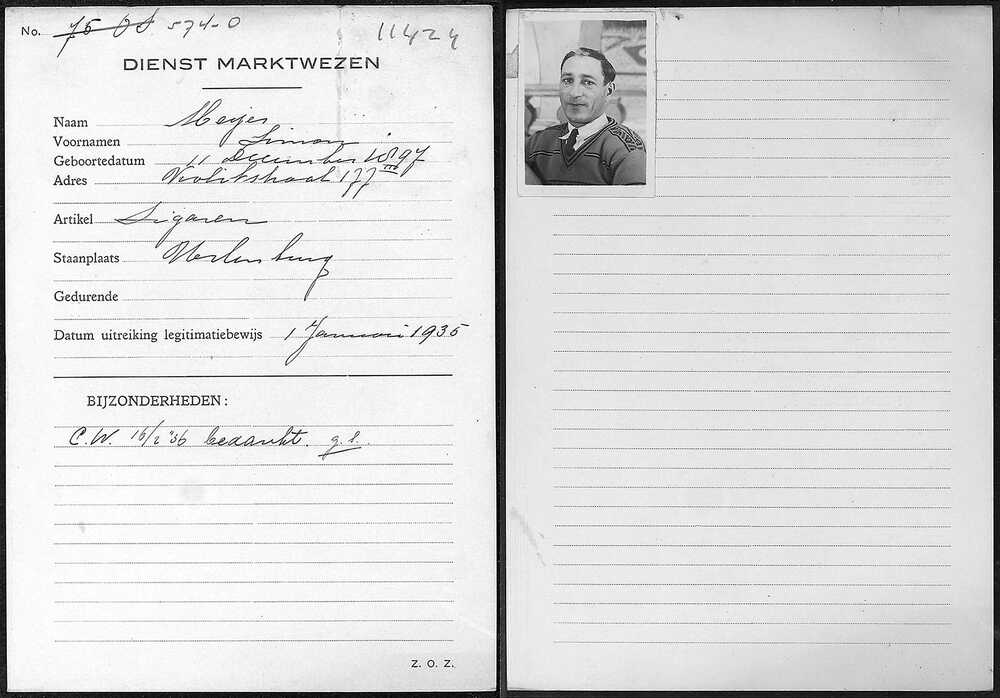 No. 75 OS 574-O 11424
DIENST MARKTWEZEN
Naam Meijer
Voornamen Simon
Geboortedatum 11 December 1897
Adres 177
Artikel Sigaren
Staanplaats
Gedurende
Datum uitreiking legitimatiebewijs 1 Januari 1935
BIJZONDERHEDEN:
C.W. 16/2 '36 bedankt.
Z. O. Z.